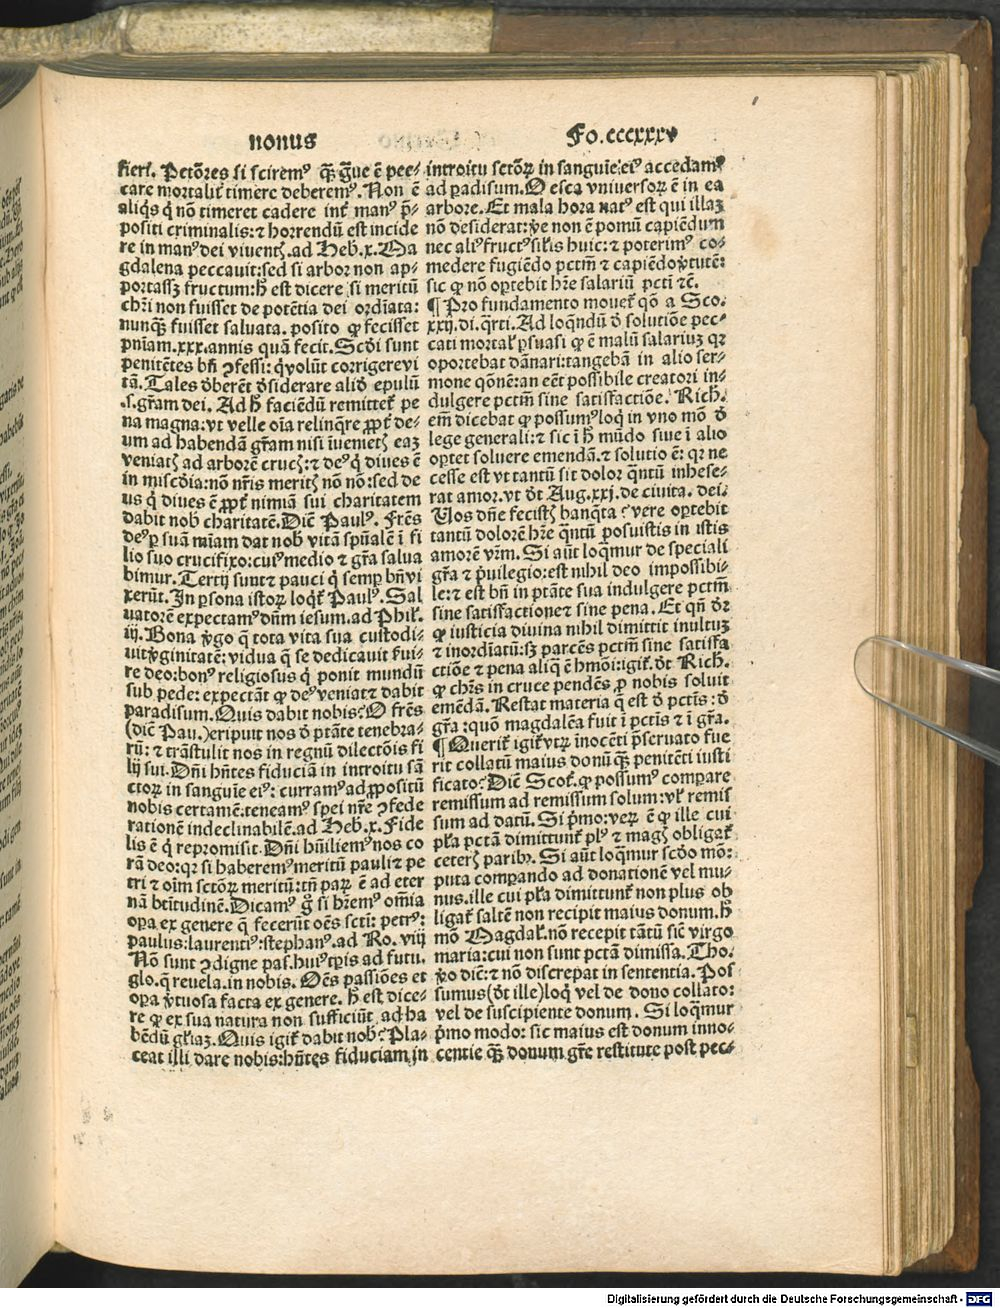 nonus
Fo.cccxxxv
fieri. Petōres si sciremꝰ q̄ꝫ g̃ue ē pec⸗
care mortalit̃ timere deberemꝰ. Non ē
aliq̃s q̇ nō timeret cadere int̃ manꝰ p̃⸗
positi criminalis: ⁊ horrendū est incide
re in manꝰ dei viuentꝭ. ad Heb.x. Ma
gdalena peccauit: sed si arbor non ap⸗
portassꝫ fructum: h̄ est dicere si meritū
chr̃i non fuisset de potētia dei ordīata:
nunq̄ꝫ fuisset saluata. posito ꝙ fecisset
pn̄iam .xxx. annis quā fecit. Scd̄i sunt
penitētes bn̄ ꝯfessi: q̇ volūt corrigere vi
tā. Tales ōberēt ōsiderare aliō epulū
.s. gr̄am dei. Ad h̄ faciēdū remittet̃ pe
na magna: vt velle oīa relinq̄re ꝓpt̃ de⸗
um ad habendā gr̄am nisi īuenietꝭ eaꝫ
veniatꝭ ad arborē crucꝭ: ⁊ deꝰ q̇ diues ē
in miscd̄ia: non nr̄is meritꝭ nō nō: sed de
us q̇ diues ē ꝓpt̃ nimiā sui charitatem
dabit nob̄ charitatē. Dic̄ Paulꝰ. Fr̄es
deꝰ ꝑ suā mīam dat nob̄ vitā sp̄ualē ī fi
lio suo crucifixo: cuiꝰ medio ⁊ gr̄a salua
bimur. Tertij sunt ⁊ pauci q̇ semꝑ bn̄ vi
xerūt. In ꝑsona istoꝝ loq̄t̃ Paulꝰ. Sal
uatorē expectamꝰ dn̄m iesum. ad Phil̄.
iij. Bona v̇go q̄ tota vita sua custodi⸗
uit v̇ginitatē: vidua q̄ se dedicauit ẜui⸗
re deo: bonꝰ religiosus q̇ ponit mundū
sub pede: expectāt ꝙ deꝰ veniat ⁊ dabit
paradisum. Quis dabit nobis? O fr̄es
(dic̄ Pau.) eripuit nos ō ptāte tenebra⸗
rū: ⁊ trāstulit nos in regnū dilectōis fi
lij sui. Dn̄i hn̄tes fiduciā in introitu sā
ctoꝝ in sanguīe eiꝰ: curramꝰ ad ꝓpositū
nobis certamē: teneamꝰ spei nr̄e ꝯfede
rationē indeclinabilē. ad Heb.x. Fide
lis ē q̇ repromisit. Dn̄i hūiliemꝰ nos co
rā deo: qꝛ si haberemꝰ meritū pauli ⁊ pe
tri ⁊ oīm sctōꝝ meritū: tn̄ paꝝ ē ad eter
nā btītudinē. Dicamꝰ g̊ si hr̄emꝰ om̄ia
oꝑa ex genere q̄ fecerūt oēs scti: petrꝰ:
paulus: laurentiꝰ: stephanꝰ. ad Ro. viij
Nō sunt ꝯdigne pas̄. huiꝰ tꝑis ad futu.
glo. q̄ reuela. in nobis. Oēs passiōes et
oꝑa v̇tuosa facta ex genere. h̄ est dice⸗
re ꝙ ex sua natura non sufficiūt ad ha
bēdū gl̄iaꝫ. Quis igit̃ dabit nob̄? Pla⸗
ceat illi dare nobis: hn̄tes fiduciam in
introitu sctōꝝ in sanguīe eiꝰ accedamꝰ
ad ꝑadisum. O esca vniuersoꝝ ē in ea
arbore. Et mala hora natꝰ est qui illaꝫ
nō desiderat: v̇e non ē pomū capiēdum
nec aliꝰ fructꝰ sil̄is huic: ⁊ poterimꝰ co⸗
medere fugiēdo pctm̄ ⁊ capiēdo v̇tutē:
sic ꝙ nō oꝑtebit hr̄e salariū pcti ⁊c̄.
¶ Pro fundamento mouet̃ qō a Sco.
xxij. di. q̃rti. Ad loq̄ndū ō solutiōe pec⸗
cati mortal̄ ꝑsuasi ꝙ ē malū salariuꝫ qꝛ
oportebat dānari: tangebā in alio ser⸗
mone qōnē: an eēt possibile creatori in⸗
dulgere pctm̄ sine satisfactiōe. Rich̄.
em̄ dicebat ꝙ possumꝰ loq̇ in vno mō ō
lege generali: ⁊ sic ī h̄ mūdo siue ī alio
oꝑtet soluere emendā. ⁊ solutio ē: qꝛ ne
cesse est vt tantū sit dolor q̃ntū inhese⸗
rat amor. vt ōt Aug. xxj. de ciuita. dei.
Uos dn̄e fecistꝭ banq̄ta? vere oꝑtebit
tantū dolorē hr̄e q̃ntū posuistis in istis
amorē vr̄m. Si aūt loq̄mur de speciali
gr̄a ⁊ p̄uilegio: est nihil deo impossibi⸗
le: ⁊ est bn̄ in ptāte sua indulgere pctm̄
sine satisfactione ⁊ sine pena. Et qn̄ dr̄
ꝙ iusticia diuina nihil dimittit inultuꝫ
⁊ inordīatū: sꝫ parcēs pctm̄ sine satisfa
ctiōe ⁊ pena aliq̄ ē hmōi: igit̃. ōt Rich̄.
ꝙ chr̄s in cruce pendēs ꝓ nobis soluit
emēdā. Restat materia q̄ est ō pctis: ō
gr̄a: quō magdalēa fuit ī pctis ⁊ ī gr̄a.
¶ Querit̃ igit̃ vtꝝ inocēti p̄seruato fue
rit collatū maius donū q̄ꝫ penitēti iusti
ficato? Dic̄ Scot̄. ꝙ possumꝰ comꝑare
remissum ad remissum solum: vl̄ remis
sum ad datū. Si p̄mo: veꝝ ē ꝙ ille cui
pl̄a pctā dimittunt̃ plꝰ ⁊ magꝭ obligat̃
ceterꝭ paribꝫ. Si aūt loq̄mur scdo mō:
puta comꝑando ad donationē vel mu⸗
nus. ille cui pl̄a dimittunt̃ non plus ob
ligat̃ saltē non recipit maius donum. h̄
mō Magdal̄. nō recepit tātū sic̄ virgo
maria: cui non sunt pctā dimissa. Tho.
v̇o dic̄: ⁊ nō discrepat in sententia. Pos
sumus (ōt ille) loq̇ vel de dono collato:
vel de suscipiente donum. Si loq̄mur
p̄mo modo: sic maius est donum inno⸗
centie q̄ꝫ donum gr̄e restitute post pec⸗
Digitalisierung gefördert durch die Deutsche Forschungsgemeinschaft - DFG